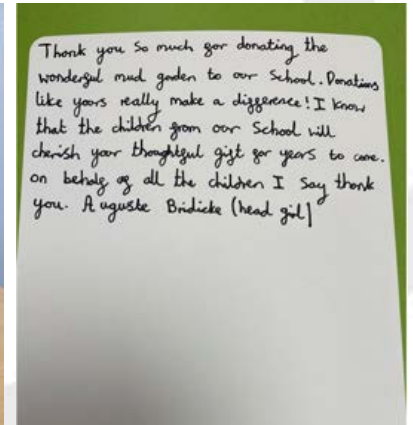 Thank you So much for donating the
wonderful mud garden to our School. Donations
like yours really make a difference! I know
that the children from our School will
cherish your thoughtful gift for years to come.
on behalf of all the children I say thank
you. Auguste Bridicke (head girl)